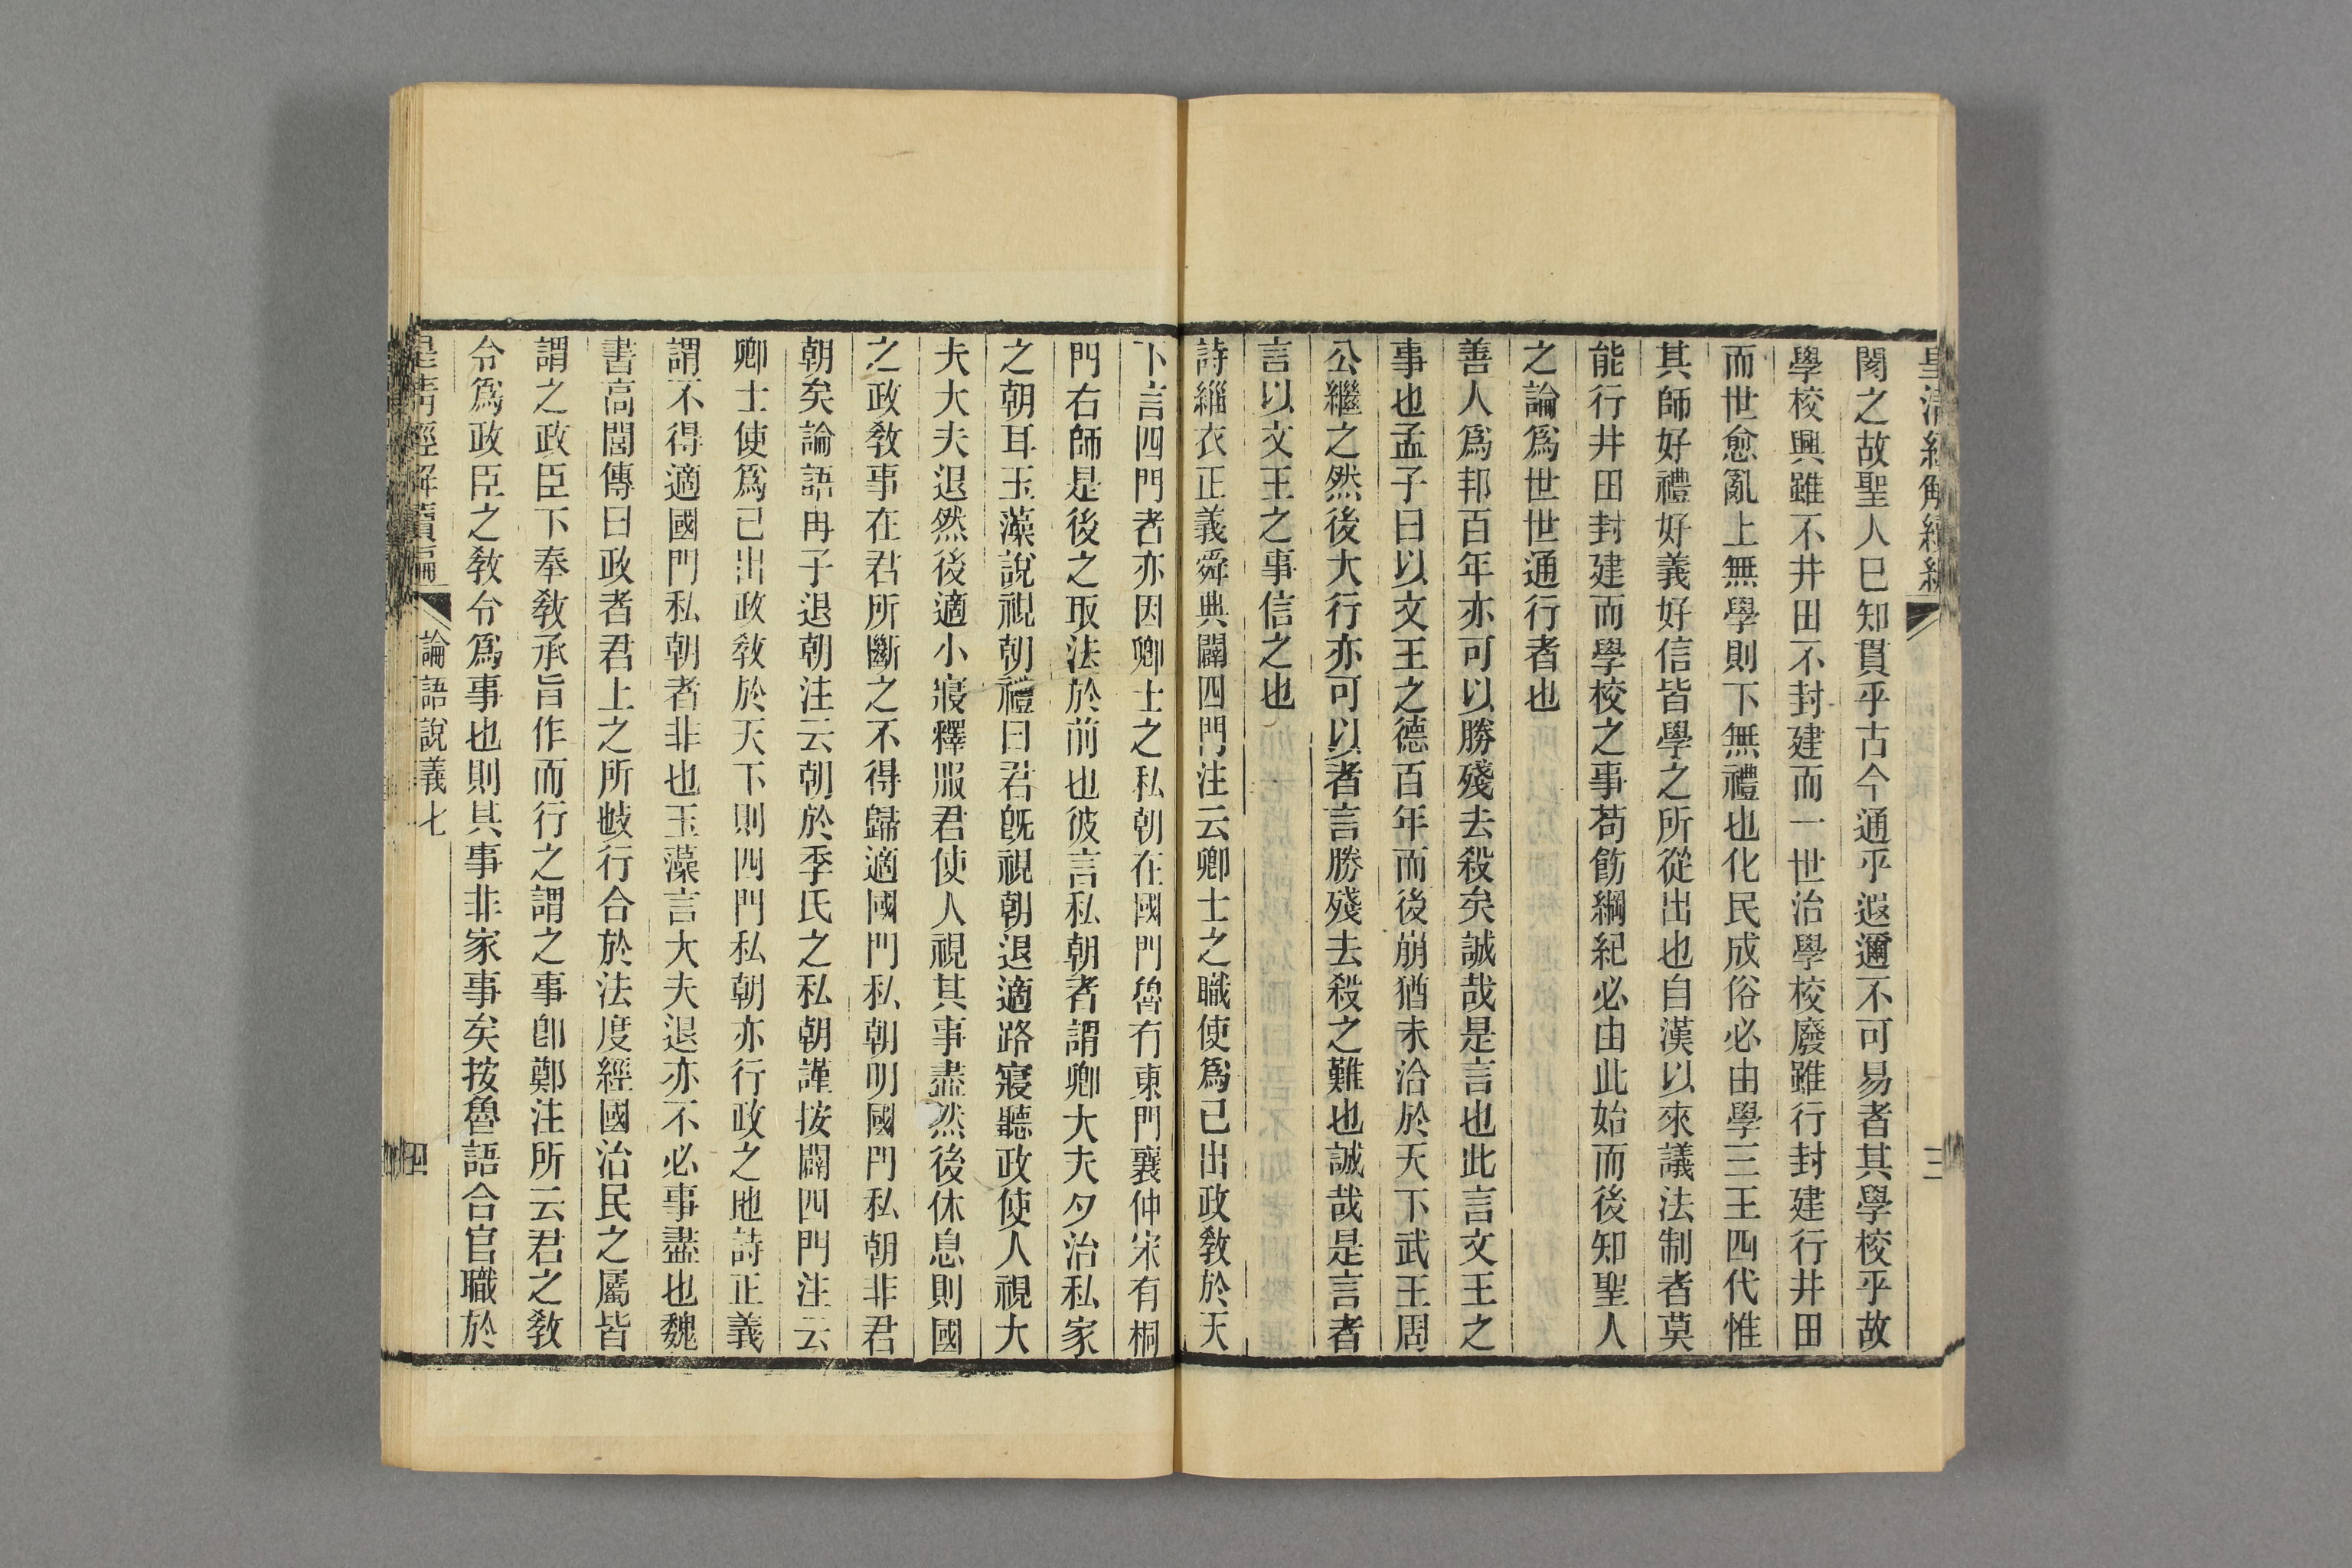 皇清經解續編
三
闋之故聖人巳知貫乎古今通乎遐邇不可易者其學校乎故
學校興雖不井田不封建而一世治學校廢雖行封建行井田
而世愈亂上無學則下無禮也化民成俗必由學三王四代惟
其師好禮好義好信皆學之所從出也自漢以來議法制者莫
能行井田封建而學校之事苟飭綱紀必由此始而後知聖人
之論爲世世通行者也
善人爲邦百年亦可以勝殘去殺矣誠哉是言也此言文王之
事也孟子曰以文王之德百年而後崩猶未洽於天下武王周
公繼之然後大行亦可以者言勝殘去殺之難也誠哉是言者
言以文王之事信之也
詩緇衣正義舜典闢四門注云卿士之職使爲己出政教於天
下言四門者亦因卿士之私朝在國門魯有東門襄仲宋有桐
門右師是後之取法於前也彼言私朝者謂卿大夫夕治私家
之朝耳玉藻說視朝禮曰君旣視朝退適路寢聽政使人視大
夫大夫退然後適小寢釋服君使人視其事盡然後休息則國
之政教事在君所斷之不得歸適國門私朝明國門私朝非君
朝矣論語冉子退朝注云朝於季氏之私朝謹按闢四門注云
卿士使爲己出政敎於天下則四門私朝亦行政之地詩正義
謂不得適國門私朝者非也玉藻言大夫退亦不必事盡也魏
書高閭傳曰政者君上之所㪏行合於法度經國治民之屬皆
謂之政臣下奉敎承旨作而行之謂之事卽鄭注所云君之敎
令爲政臣之敎令爲事也則其事非家事矣按魯語合官職於
皇清經解續編
論語說義七
四